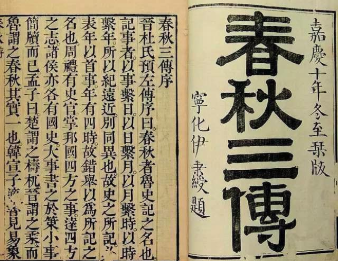 嘉慶十年冬至栞版
春秋三傳
寧化伊秉綬題
春秋三傳序
晉杜氏預左傳序曰春秋者魯史記之名也
記事者以事繫日以日繫月以月繫時以時
繫年所以紀遠近別同異也故史之所記必
表年以首事年有四時故錯舉以為所記之
名也周禮有史官掌邦國四方之事達四方
之志諸侯亦各有國史大事書之於策小事
簡牘而已孟子曰楚謂之檮杌晉謂之乘而
魯謂之春秋其實一也韓宣子適魯見易象